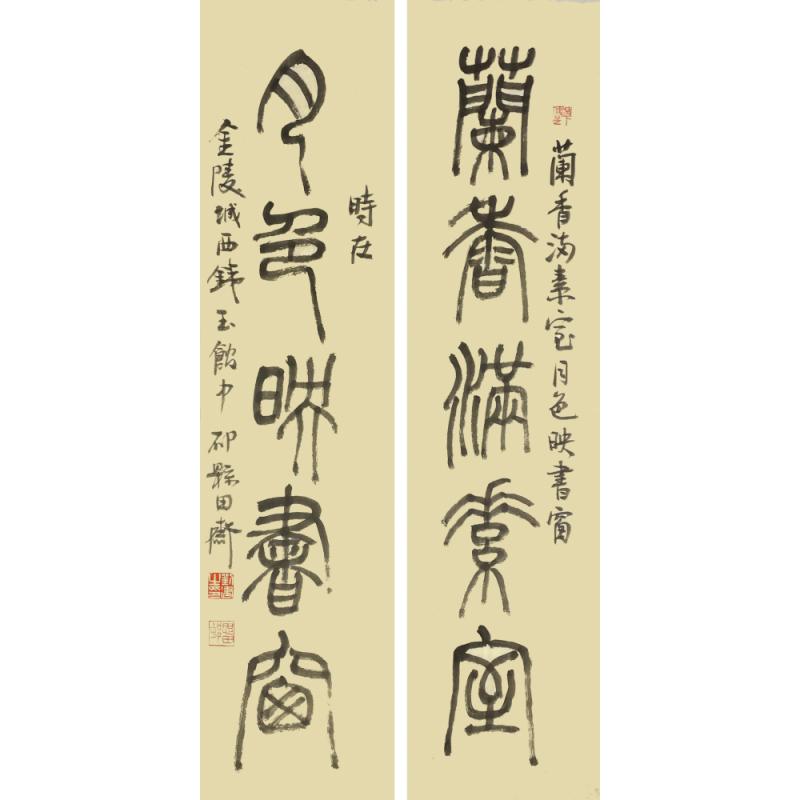 蘭香滿素室月色映書窗
蘭香滿素室
月色映書窗
時在
金陵城西鉢玉館中 邳縣田齋